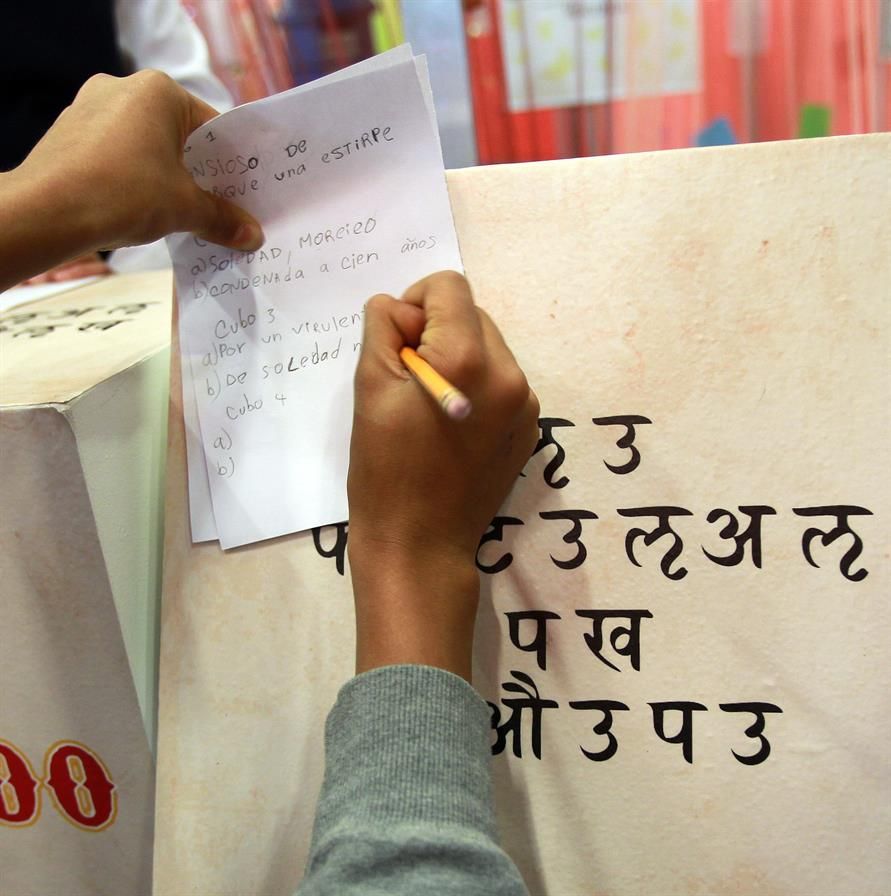 1
DE
una ESTIRPE
a) SOLEDAD, MORCIEO
b) CONDENAda a cien años
Cubo 3
a) Por un virulent
b) De soledad
Cubo 4
a)
b)
ऌ उ
ट उ ऌ अ ऌ
प ख
औ उ प उ
00